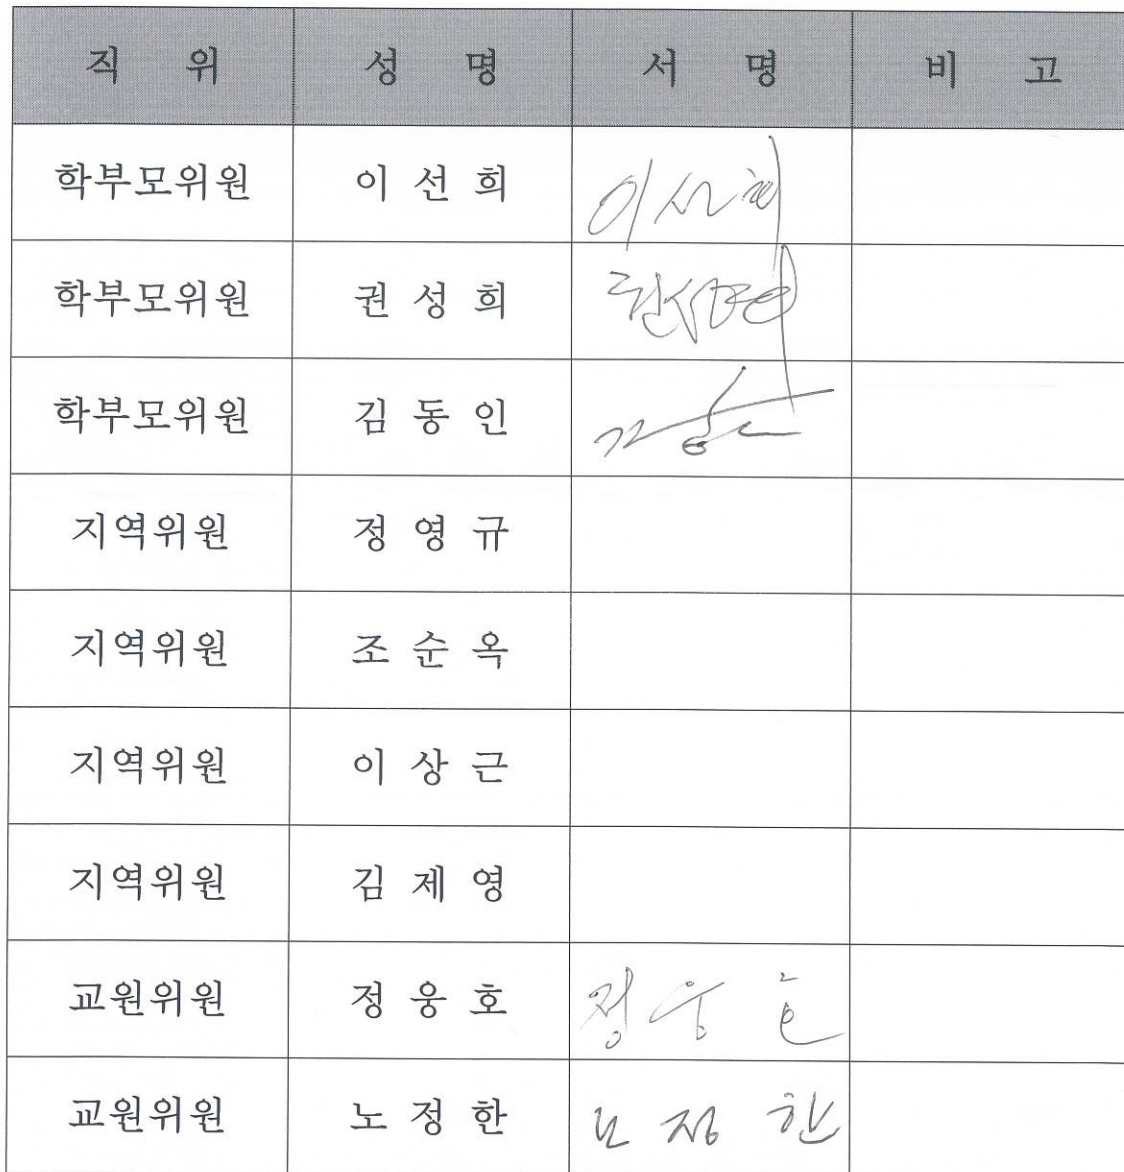 직 위 성 명 서 명 비 고
학부모위원 이 선 희 이선희
학부모위원 권 성 희 권성희
학부모위원 김 동 인
지역위원 정 영 규
지역위원 조 순 옥
지역위원 이 상 근
지역위원 김 제 영
교원위원 정 웅 호 정 웅 호
교원위원 노 정 한 노 정 한